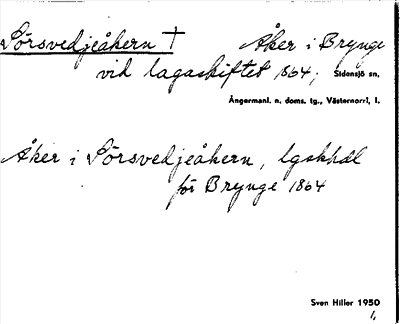 Sörsvedjeåkern † Åker i Brynge
vid lagaskiftet 1864, Sidensjö sn.
Ångermanl. n. doms. tg., Västernorrl. l.
Åker i Sörsvedjeåkern, lgskhdl
för Brynge 1864
Sven Hiller 1950
1,